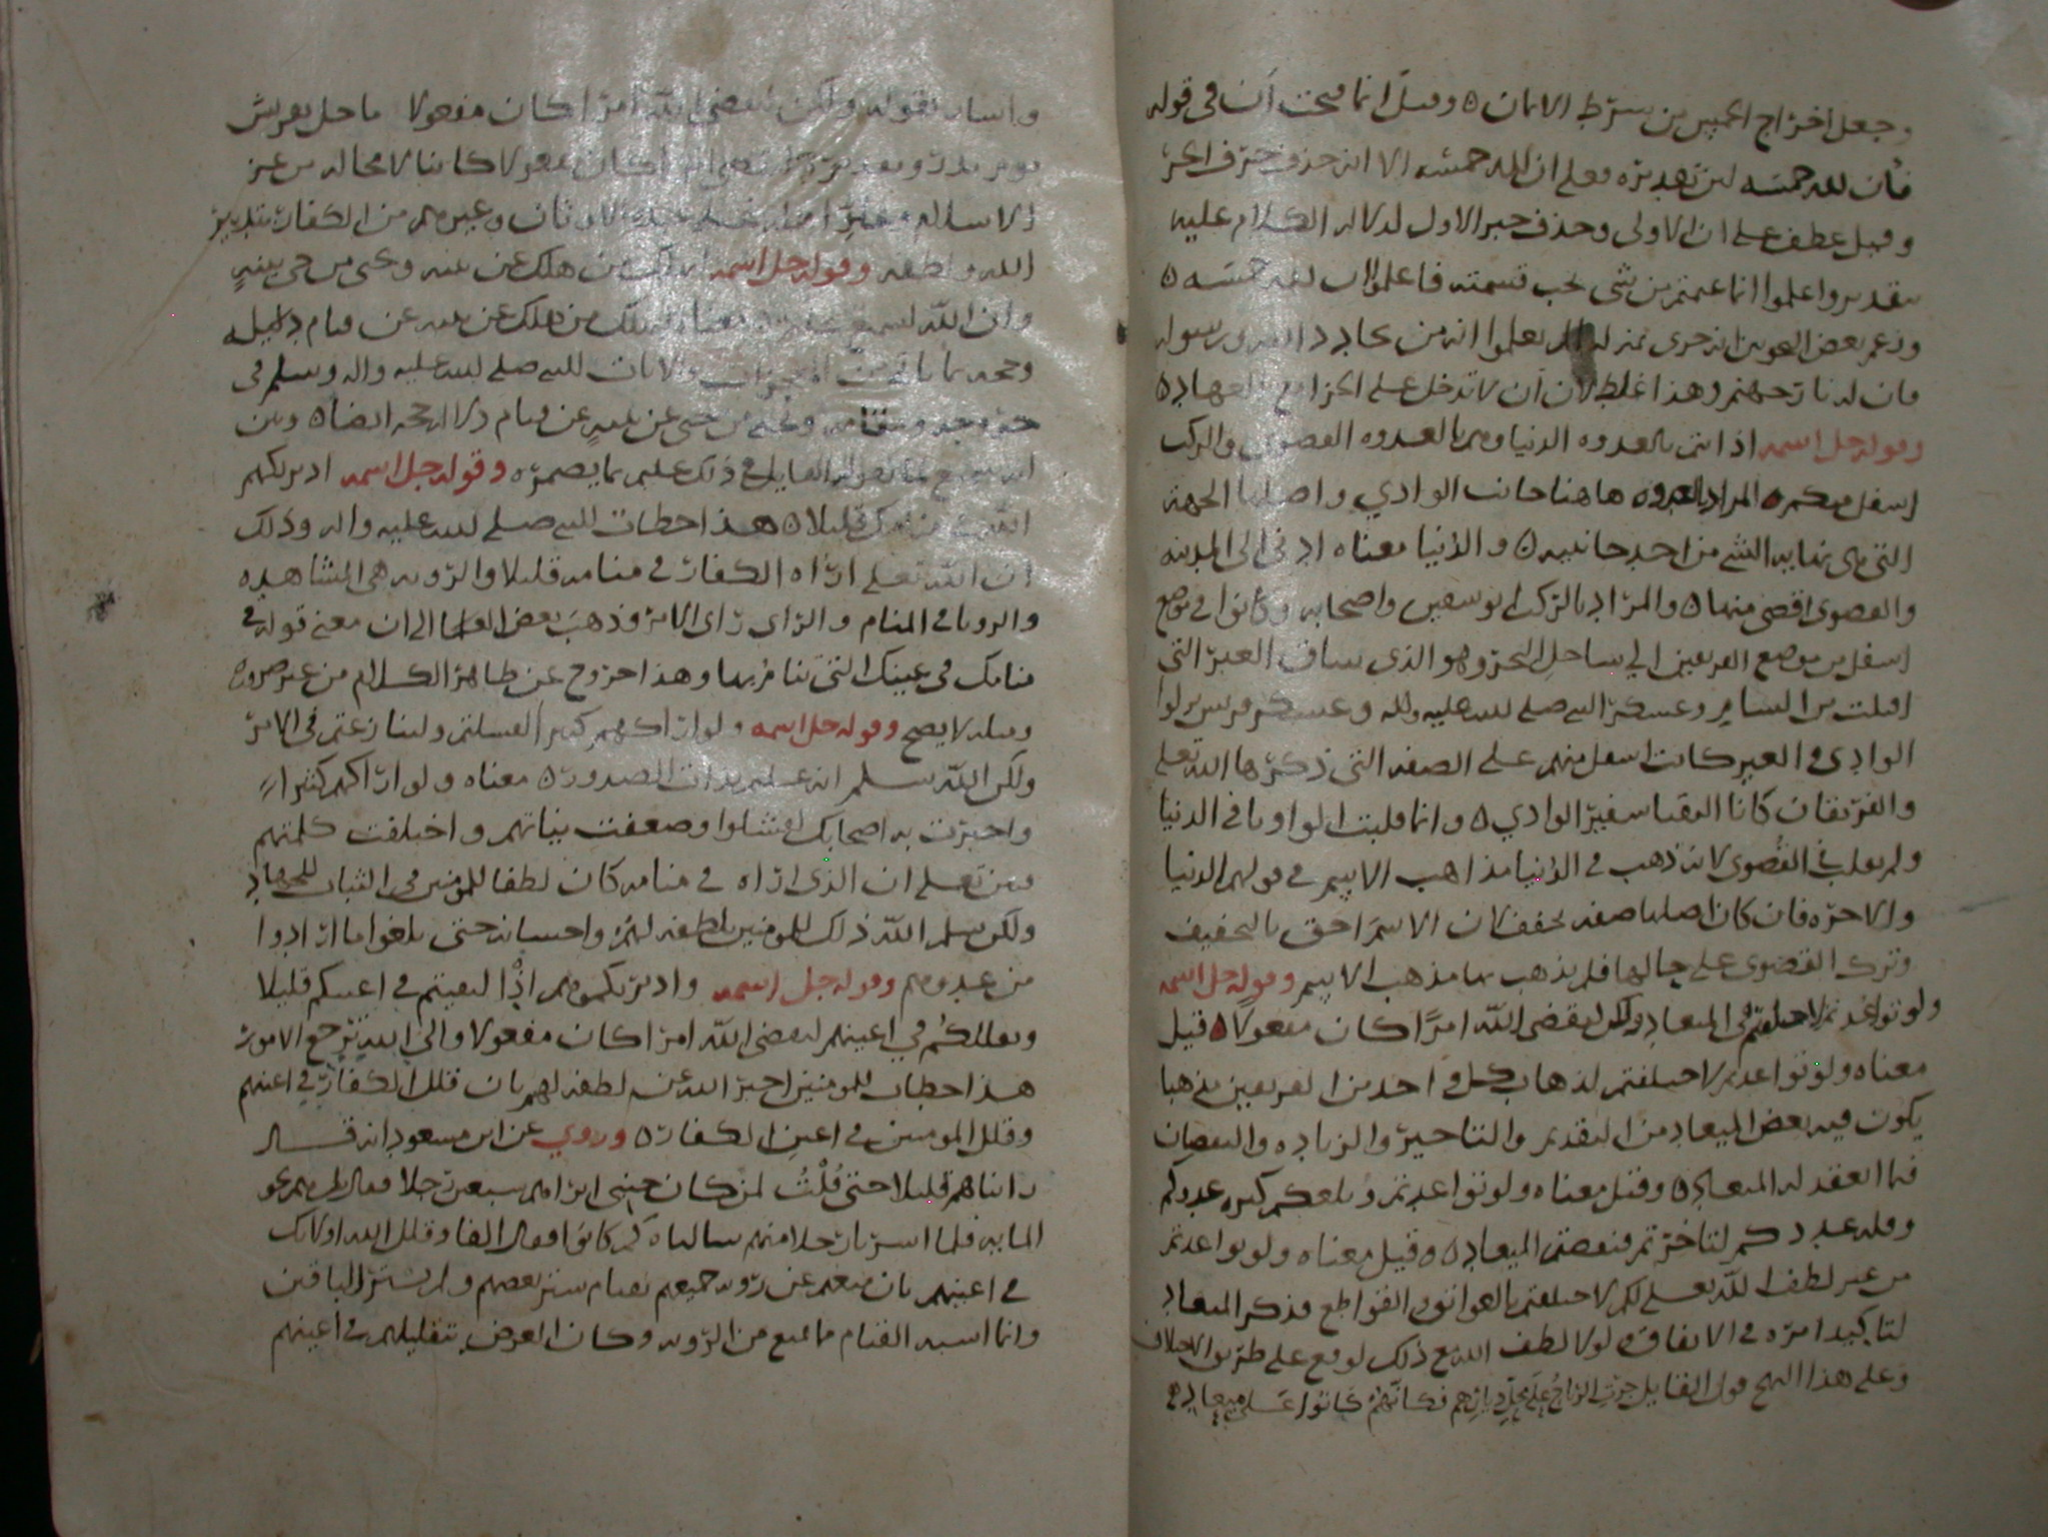 وجعل اخراج الخمس من شرط الايمان ٥ وقيل انما فتحت أن في قوله
فأن لله خمسه لان تقديره فعلى ان لله خمسه الا انه حذف حرف الجر
وقيل عطف على ان الاولى وحذف خبر الاولى لدلالة الكلام عليه
تقديره واعلموا انما غنمتم من شي يجب قسمته فاعلموا ان لله خمسه ٥
وزعم بعض النحويين انه جرى منزلة الم يعلموا انه من يحادد الله ورسوله
فان له نار جهنم وهذا غلط لان أن لا تدخل على الجزا
وقوله جل اسمه اذ انتم بالعدوه الدنيا وهم بالعدوه القصوى والركب
اسفل منكم ٥ المراد بالعدوه هاهنا جانب الوادي واصلها الجهة
التي هي نهاية الشي من احد جانبيه ٥ والدنيا معناه ادنى الى المدينه
والقصوى اقصى منها ٥ والمراد بالركب ابو سفين واصحابه وكانوا في موضع
اسفل من موضع الفريقين الى ساحل البحر وهو الذي ساق العير التي
اقبلت من الشام وعسكر النبي صلى الله عليه واله وعسكر قريش نزلوا
الوادي والعير كانت اسفل منهم على الصفة التي ذكرها الله تعلى
والفريقان كانا التقيا سفير الوادي ٥ وانما قلبت الواو يا في الدنيا
ولم تقلب في القصوى لانه ذهب في الدنيا مذاهب الاسم في قولهم الدنيا
والاخره فان كان اصلها صفه فخفف لان الاسم احق بالتخفيف
وترك القصوى على حالها فلم يذهب بها مذهب الاسم وقوله جل اسمه
ولو تواعدتم لاختلفتم في الميعاد ولكن ليقضي الله امرًا كان مفعولا ٥ قيل
معناه ولو تواعدتم لاختلفتم لذهاب كل واحد من الفريقين مذهبا
يكون فيه بعض الميعاد من التقديم والتاخير والزياده والنقصان
فيما انعقد له الميعاد ٥ وقيل معناه ولو تواعدتم وبلغكم كثرة عددكم
وقله عددكم لتاخرتم فنقضتم الميعاد ٥ وقيل معناه ولو تواعدتم
من غير لطف الله تعلى لكم لاختلفتم بالعوائق والقواطع فذكر الميعاد
لتاكيد امره في الاتفاق ٥ لولا لطف الله مع ذلك لوقع على طريق الاختلاف
وعلى هذا النهج قول القايل جرت الرياح على محل ديارهم فكأنهم كانوا على ميعاد ٥
واشار بقوله ولكن ليقضي الله امرا كان مفعولا ما حل بقريش
يوم بدر وتقديره ليقضي امرا كان مفعولا كائنا لا محاله من عز
الاسلام وعلو اهله على عبدة الاوثان وغيرهم من الكفار بتدبير
الله ولطفه وقوله جل اسمه ليهلك من هلك عن بينه ويحيى من حي عن بينةٍ
وان الله لسميع عليم ٥ معناه ليهلك من هلك عن بينه عن قيام دليله
وحجه بما باتي من المعجزات والايات للنبي صلى الله عليه واله وسلم في
حروبه ومقامه ويحيى من حي عن بينةٍ عن قيام دلالة الحجه ايضا ٥ وبين
انه سميع لما يقوله القايل في ذلك عليم بما يضمره وقوله جل اسمه اذ يريكهم
الله في منامك قليلا ٥ هذا خطاب للنبي صلى الله عليه واله وذلك
ان الله تعلى اراه الكفار في منامه قليلا والرؤيه هي المشاهده
والرويا في المنام والراي راى الامر وذهب بعض العلما الى ان معنى قوله في
منامك في عينك التي تنام بها وهذا خروج عن ظاهر الكلام من غير ضروره
ومثله لا يصح وقوله جل اسمه ولو اراكهم كثيرا لفشلتم ولتنازعتم في الامر
ولكن الله سلم انه عليم بذات الصدور ٥ معناه ولو اراكهم كثيرا
واخبرت به اصحابك لفشلوا وضعفت نياتهم واختلفت كلمتهم
فبين تعلى ان الذي اراه في منامه كان لطفا للمومنين في الثبات للجهاد
ولكن سلم الله ذلك للمومنين بلطفه لهم واحسانه حتى بلغوا ما ارادوا
من عدوهم وقوله جل اسمه واذ يريكموهم اذ التقيتم في اعينكم قليلا
ويقللكم في اعينهم ليقضي الله امرا كان مفعولا والى الله ترجع الامور
هذا خطاب للمومنين اخبر الله عن لطفه لهم بان قلل الكفار في اعينهم
وقلل المومنين في اعين الكفار ٥ وروي عن ابن مسعود انه قال
راناهم قليلا حتى قُلْتُ لمن كان جنبي اتراهم سبعين رجلا فقال هم نحو
المايه فلما اسرنا رجلا منهم سالناه كم كانوا فقال الفا وقلل الله اولئك
في اعينهم بان منعهم عن رؤية جميعهم بقيام ستر بعضهم ولم يستر الباقين
وانما اسبه القتام ما يمنع من الرؤيه وكان الغرض بتقليلهم في اعينهم